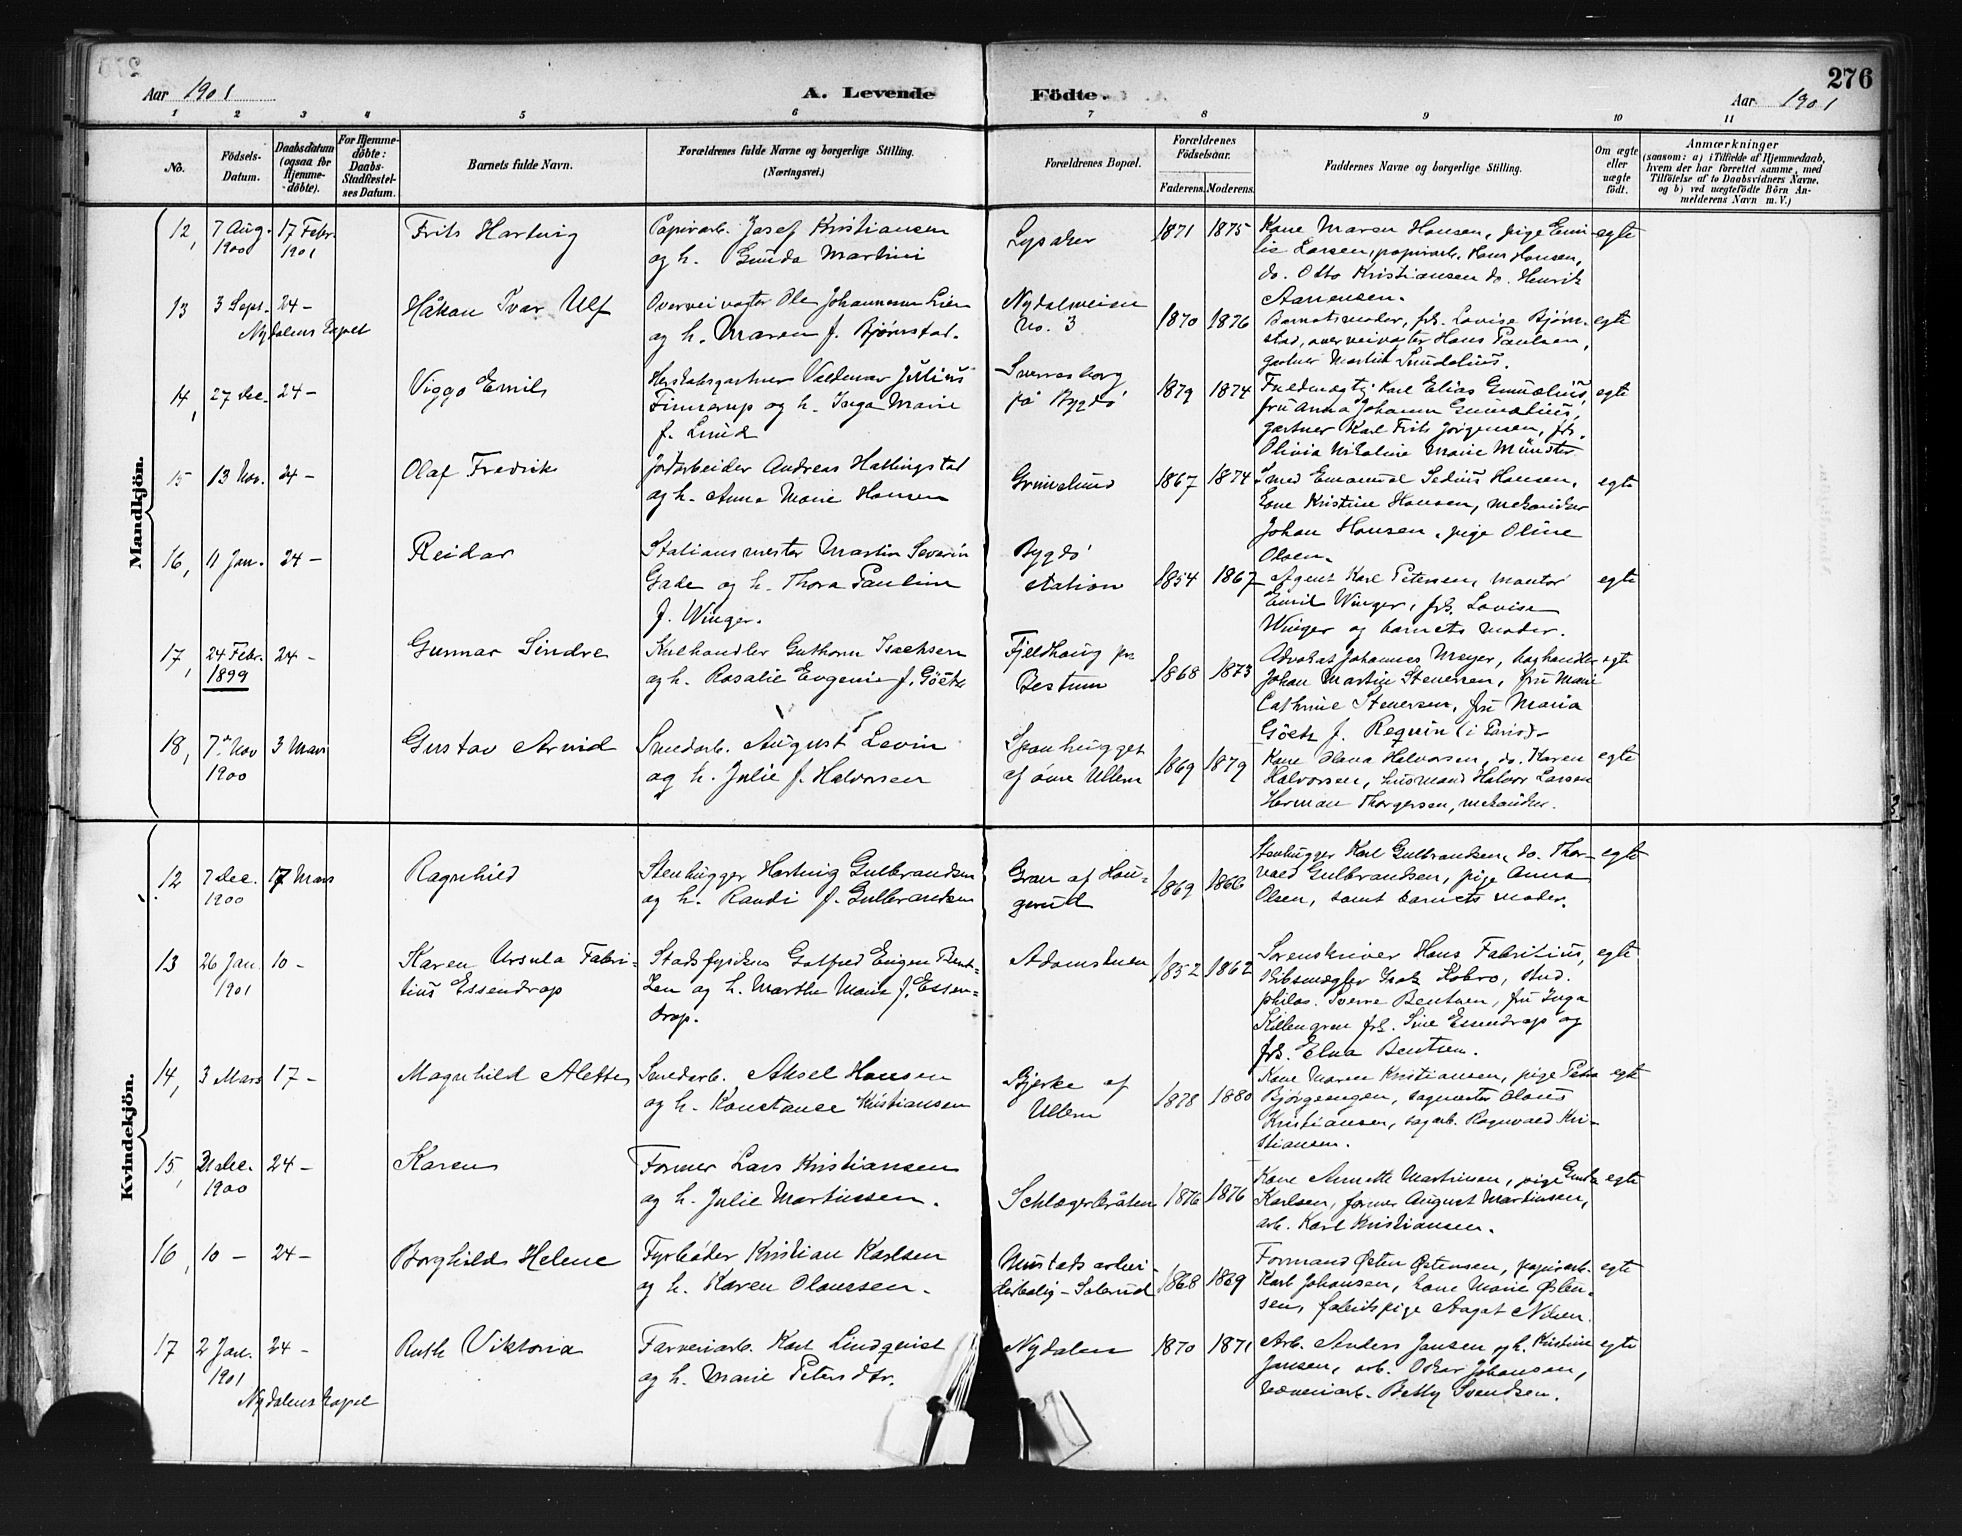 276
Aar 1901 A. Levende Fødte. Aar 1901
1 2 3 4 5 6 7 8 9 10 11
No.
Födsels-
Datum.
Daabsdatum
(ogsaa for
Hjemme-
döbte).
For Hjemme-
döbte:
Daabs-
Stadfæstel-
ses Datum.
Barnets fulde Navn.
Forældrenes fulde Navne og borgerlige Stilling.
(Næringsvei.)
Forældrenes Bopæl.
Forældrenes
Födselsaar.
Faderens. Moderens.
Faddernes Navne og borgerlige Stilling.
Om ægte
eller
uægte
födt.
Anmærkninger
(saasom: a) i Tilfælde af Hjemmedaab,
hvem der har forrettet samme, med
Tilföielse af to Daabsvidners Navne,
og b) ved uægtefödte Börn An-
melderens Navn m. V.)
Mandkjön.
12, 7 Aug. 1900 17 Febr. 1901
Frits Hartvig
Papirarb. Josef Kristiansen
og h. Gunda Martini
Lysaker
1871 1875
Kone Maren Hansen, pige Emi-
lie Larsen, papirarb. Hans Hansen,
do. Otto Kristiansen do. Henrik
Aanensen.
egte
13 3 Sept. 24 -
Nydalens Capel
Håkon Ivar Ulf
Overveivogter Ole Johannesen Lien
og h. Maren f. Bjørnstad.
Nydalsveien
No. 3
1870 1876
Barnets moder, frk. Lovise Bjørn-
stad, overveivogter Hans Paulsen,
gartner Martin
egte
14, 27 Dec. 24 -
Viggo Emil
Herskabsgartner Valdemar Julius
Finnerup og h. Inga Marie
f. Lund
Sverresborg
på Bygdö
1879 1874
Fuldmægtig Karl Elias
fru Anna Johanne
gartner Karl Frits Jörgensen, frk.
Olivia Nikoline Marie Münster
egte
15 13 Nov. 24 -
Olaf Fredrik
Jordarbeider Andreas Hallingstad
og h. Anna Marie Hansen
Grimelund
1867 1874
Smed Emanuel Sedius Hansen,
kone Kristine Hansen, mekaniker
Johan Hansen, pige Oline
Olsen.
egte
16, 11 Jan. 24 -
Reidar
Stationsmester Martin Severin
Gade og h. Thora Pauline
f. Winger.
Bygdö
station
1854 1867
Agent Karl Petersen, montör
Emil Winger, frk. Lovise
Winger og barnets moder.
egte
17, 24 Febr. 1899 24 -
Gunnar Sindre
Kulhandler Guthorm Isachsen
og h. Rosalie Eugenie f. Göetz
Fjeldhaug pr.
Bestum
1868 1873
Advokat Johannes Meyer, boghandler
Johan Martin Stenersen, fru Marie
Cathrine Stenersen, fru Maria
Göetz f. Requin (i Paris)-
egte
18, 7 Nov 1900 3 Mars
Gustav Arvid
Smedarb. August Levin
og h. Julie f. Halvorsen
Spanhugget
af övre Ullern
1869 1879
Kone Olava Halvorsen, do. Karen
Halvorsen, husmand Halvor Larsen
Herman Thorgersen, mekaniker.
egte
Kvindekjön.
12 7 Dec. 1900 17 Mars
Ragnhild
Stenhugger Hartvig Gulbrandsen
og h. Randi f. Gulbrandsen
Gran af Hou-
gerud
1869 1866
Stenhugger Karl Gulbrandsen, do. Thor-
vald Gulbrandsen, pige Anna
Olsen, samt barnets moder.
egte
13 26 Jan. 1901 10 -
Karen Ursula Fabri-
tius Essendrop
Stadsfysikus Gotfred Eugen Bent-
zen og h. Marthe Marie f. Essen-
drop.
Adamstuen
1852 1862
Sorenskriver Hans Fabritius,
Skibsmægler Kobro, stud.
philos. Sverre Bentzen, fru Inga
Killengren frk. Sine Essendrop og
frk. Elna Bentzen.
egte
14, 3 Mars 17 -
Magnhild Alette
Smedarb. Aksel Hansen
og h. Konstance Kristiansen
Bjerke af
Ullern
1878 1880
Kone Maren Kristiansen, pige Petra
Bjørgeengen, sagmester Olaus
Kristiansen, sagarb. Ragnvald Kri-
stiansen.
egte
15, 31 Dec. 1900 24 -
Karen
Former Lars Kristiansen
og h. Julie Martinsen.
Schlægerbråten
1876 1876
Kone Annette Martinsen, pige Gunda
Karlsen, former August Martinsen,
arb. Karl Kristiansen.
egte
16, 10 - 24 -
Borghild Helene
Fyrbøder Kristian Karlsen
og h. Karen Olaussen.
Mustads arbei-
derbolig - Solerud
1868 1869
Formand Østen Østensen, papirarb.
Karl Johansen, kone Marie Østen-
sen, fabrikspige Aagot Nilsen.
egte
17 2 Jan. 1901 24 -
Nydalens kapel
Ruth Viktoria
Farveriarb. Karl Lindqvist
og h. Marie Petersdtr.
Nydalen
1870 1871
Arb. Anders Jansen og h. Kristine
Jansen, arb. Oskar Johansen,
væveriarb. Betty Svendsen.
egte